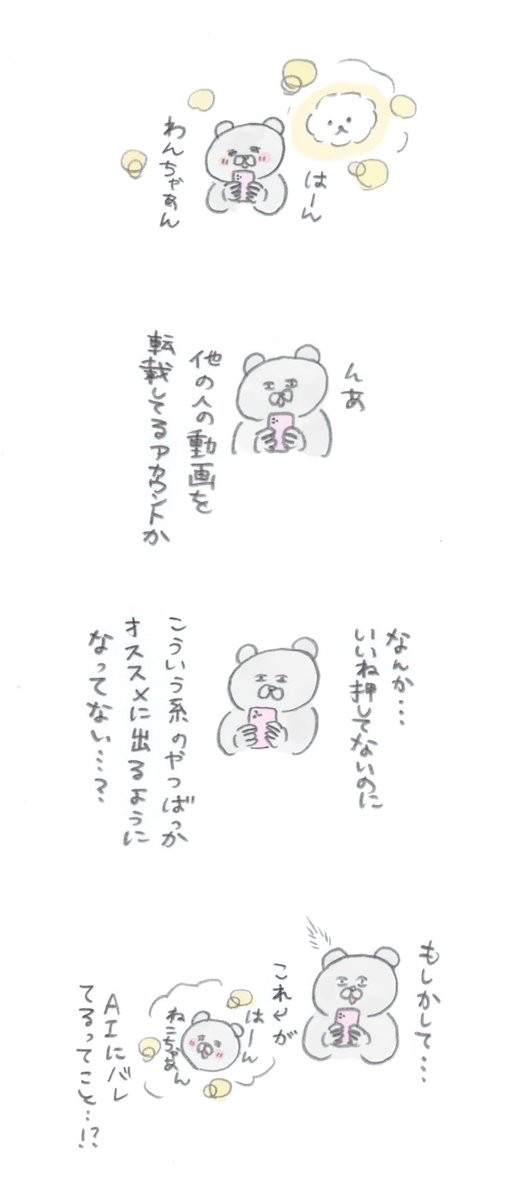 はーん
わんちゃぁん
んあ
他の人の動画を
転載してるアカウントか
なんか…
いいね押してないのに
こういう系のやつばっか
オススメに出るように
なってない…?
もしかして…
これが
はーん
ねこちゃぁん
AIにバレ
てるってこと…!?